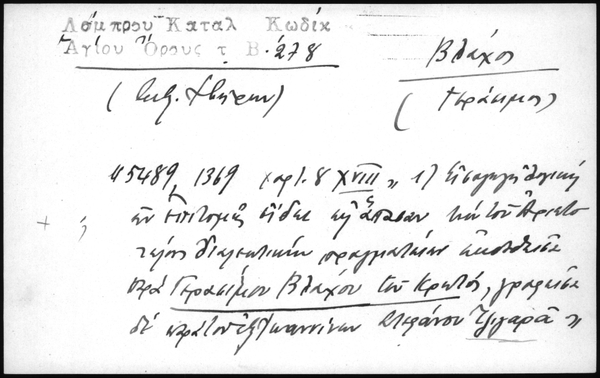 Λάμπρου Καταλ Κωδίκ
Ἁγίου Ὄρους τ Β. 278
Βλάχος
(Γεράσιμος)
5489, 1369 χαρτ. 8 XVIII „ 1) Εἰσαγωγὴ λογικὴ
ἐν ἐπιτομῆς εἴδει εἰς ἅπασαν τὴν τοῦ Ἀριστο
τέλους διαλεκτικὴν πραγματείαν ἐκτεθεῖσα
παρὰ Γερασίμου Βλάχου τοῦ Κρητός, γραφεῖσα
δὲ παρὰ τοῦ ἐξ Ἰωαννίνων Στεφάνου Τζιγαρᾶ „